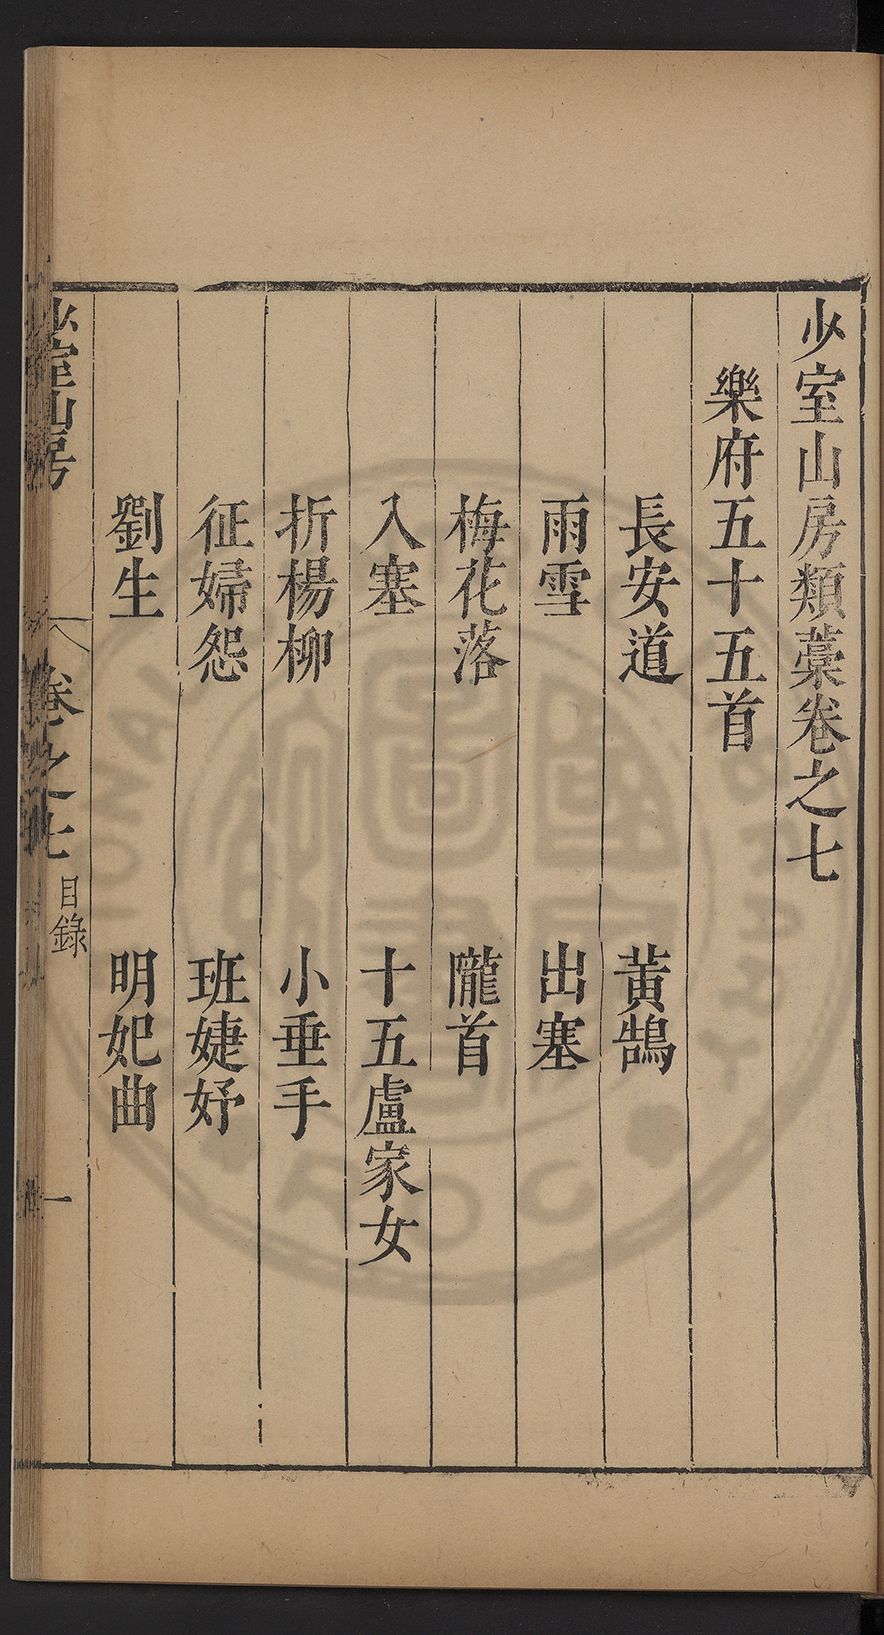 少室山房類藁卷之七
樂府五十五首
長安道 黃鵠
雨雪 出塞
梅花落 隴首
入塞 十五盧家女
折楊柳 小垂手
征婦怨 班婕妤
劉生 明妃曲
少室山房 卷之七 目錄 一